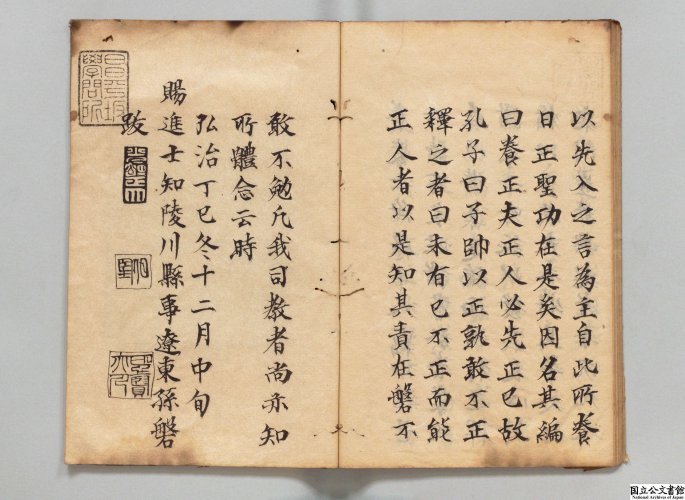 以先入之言為主自此所養
日正聖功在是矣因名其編
曰養正夫正人必先正已故
孔子曰子帥以正孰敢不正
釋之者曰未有已不正而能
正人者以是知其責在磐不
敢不勉凡我司教者尚亦知
所體念云時
弘治丁巳冬十二月中旬
賜進士知陵川縣事遼東孫磐
跋
昌平坂
學問所
国立公文書館
National Archives of Japan